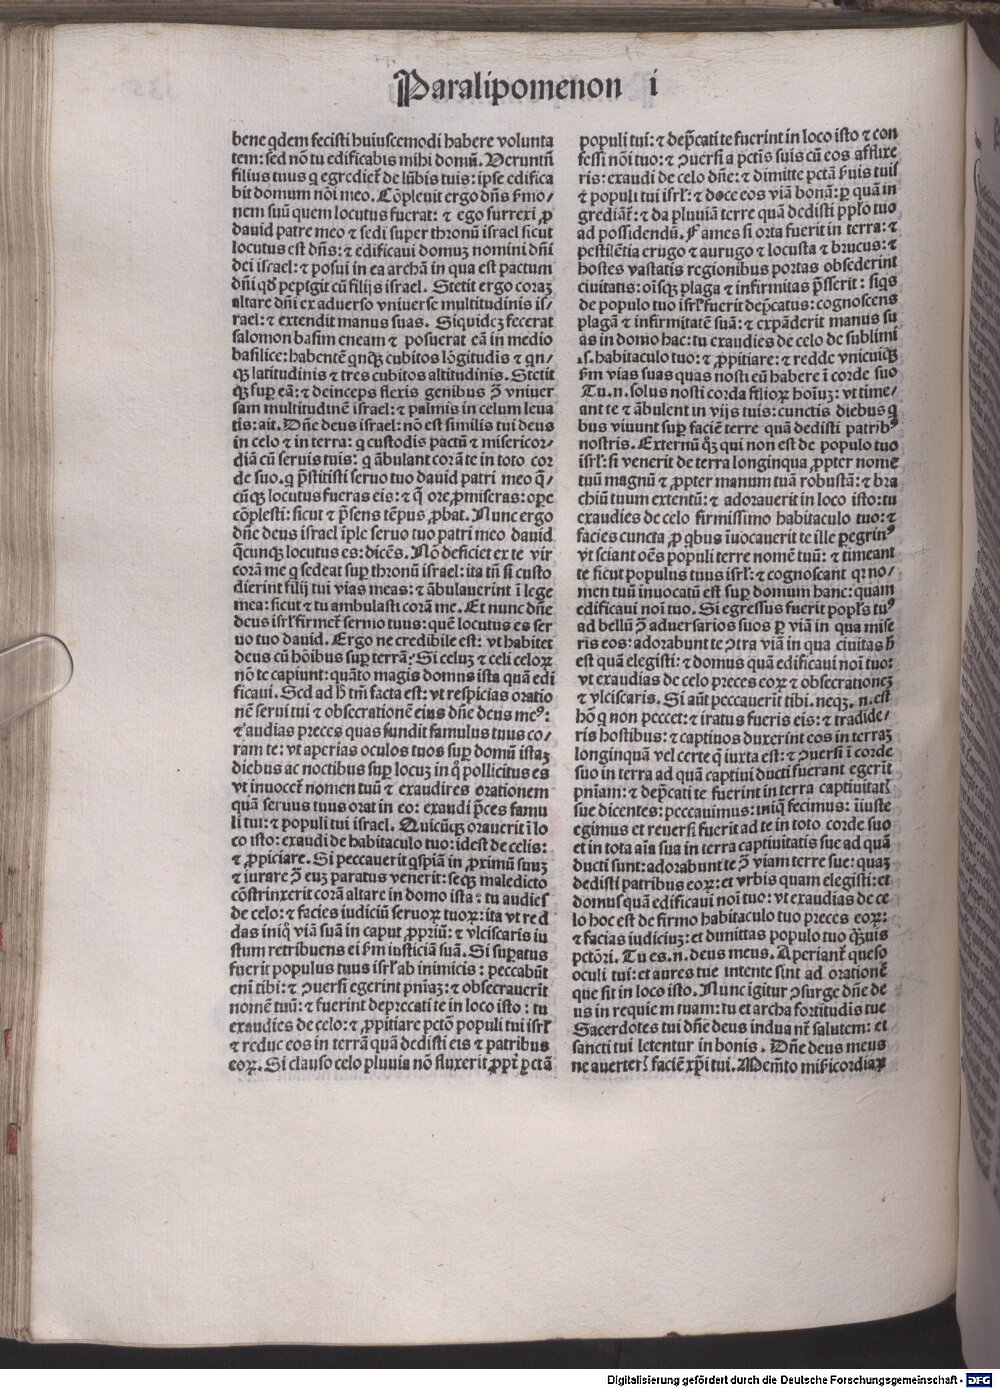 Paralipomenon i
bene qdem fecisti huiuscemodi habere volunta
tem: sed nõ tu edificabis mihi domũ. Veruntñ
filius tuus q egrediet̃ de lũbis tuis: ipse edifica
bit domum nõi meo. Cõpleuit ergo dñs ẜmo/
nem suũ quem locutus fuerat: ⁊ ego surrexi ꝓ
dauid patre meo ⁊ sedi super thronũ israel sicut
locutus est dñs: ⁊ edificaui domuꝫ nomini dñi
dei israel: ⁊ posui in ea archã in qua est pactum
dñi qd̃ pepigit cũ filijs israel. Stetit ergo coraꝫ
altare dñi ex aduerso vniuerse multitudinis is/
rael: ⁊ extendit manus suas. Siquideꝫ fecerat
salomon basim eneam ⁊ posuerat eã in medio
basilice: habentẽ qnqꝫ cubitos lõgitudĩs ⁊ qn/
qꝫ latitudinis ⁊ tres cubitos altitudinis. Stetit
qꝫ suꝑ eã: ⁊ deinceps flexis genibus ↄ̃ vniuer
sam multitudinẽ israel: ⁊ palmis in celum leua
tis: ait. Dñe deus israel: nõ est similis tui deus
in celo ⁊ in terra: q custodis pactũ ⁊ misericor/
diã cũ seruis tuis: q ãbulant corã te in toto cor
de suo. q p̃stitisti seruo tuo dauid patri meo q̃/
cũqꝫ locutus fueras eis: ⁊ q̃ ore ꝓmiseras: oꝑe
cõplesti: sicut ⁊ p̃sens tẽpus ꝓbat. Nunc ergo
dñe deus israel ĩple seruo tuo patri meo dauid
q̃cunqꝫ locutus es: dicẽs. Nõ deficiet ex te vir
corã me q sedeat suꝑ thronũ israel: ita tñ si custo
dierint filij tui vias meas: ⁊ ãbulauerint ĩ lege
mea: sicut ⁊ tu ambulasti corã me. Et nunc dñe
deus isrl̃ firmet̃ sermo tuus: quẽ locutus es ser
uo tuo dauid. Ergo ne credibile est: vt habitet
deus cũ hõibus suꝑ terrã? Si celuꝫ ⁊ celi celoꝝ
nõ te capiunt: quãto magis domus ista quã edi
ficaui. Sed ad h̃ tm̃ facta est: vt respicias oratio
nẽ serui tui ⁊ obsecrationẽ eius dñe deus meꝰ:
⁊ audias preces quas fundit famulus tuus co/
ram te: vt aperias oculos tuos suꝑ domũ istaꝫ
diebus ac noctibus suꝑ locuꝫ in q̊ pollicitus es
vt inuocet̃ nomen tuũ ⁊ exaudires orationem
quã seruus tuus orat in eo: exaudi p̃ces famu
li tui: ⁊ populi tui israel. Quicũqꝫ orauerit ĩ lo
co isto: exaudi de habitaculo tuo: id est de celis:
⁊ ꝓpiciare. Si peccauerit qspiã in ꝓximũ suuꝫ
⁊ iurare ↄ̃ euꝫ paratus venerit: seqꝫ maledicto
cõstrinxerit corã altare in domo ista: tu audies
de celo: ⁊ facies iudiciũ seruoꝝ tuoꝝ: ita vt red
das iniq̊ viã suã in caput ꝓpriũ: ⁊ vlciscaris iu
stum retribuens ei ẜm iusticiã suã. Si suꝑatus
fuerit populus tuus isrl̃ ab inimicis: peccabũt
enĩ tibi: ⁊ ↄuersi egerint pñiaꝫ: ⁊ obsecrauerit
nomẽ tuũ: ⁊ fuerint deprecati te in loco isto: tu
exaudies de celo: ⁊ ꝓpitiare pctõ populi tui isrl̃
⁊ reduc eos in terrã quã dedisti eis ⁊ patribus
eoꝝ. Si clauso celo pluuia nõ fluxerit ꝓpt̃ pctã
populi tui: ⁊ dep̃cati te fuerint in loco isto ⁊ con
fessi nõi tuo: ⁊ ↄuersi a pctĩs suis cũ eos afflixe
ris: exaudi de celo dñe: ⁊ dimitte pctã ẜuis tuis
⁊ populi tui isrl̃: ⁊ doce eos viã bonã: ꝑ quã in
grediãt̃: ⁊ da pluuiã terre quã dedisti pplõ tuo
ad possidendũ. Fames si orta fuerit in terra: ⁊
pestilẽtia erugo ⁊ aurugo ⁊ locusta ⁊ brucus: ⁊
hostes vastatis regionibus portas obsederint
ciuitatis: oĩsqꝫ plaga ⁊ infirmitas p̃sserit: siqs
de populo tuo isrl̃ fuerit dep̃catus: cognoscens
plagã ⁊ infirmitatẽ suã: ⁊ expãderit manus su
as in domo hac: tu exaudies de celo de sublimi
.s. habitaculo tuo: ⁊ ꝓpitiare: ⁊ redde vnicuiqꝫ
ẜm vias suas quas nosti eũ habere ĩ corde suo
Tu .n. solus nosti corda filioꝝ hoĩuꝫ: vt time/
ant te ⁊ ãbulent in vijs tuis: cunctis diebus q
bus viuunt suꝑ faciẽ terre quã dedisti patribꝰ
nostris. Externũ q̊ꝫ qui non est de populo tuo
isrl̃: si venerit de terra longinqua ꝓpter nomẽ
tuũ magnũ ⁊ ꝓpter manum tuã robustã: ⁊ bra
chiũ tuum extentũ: ⁊ adorauerit in loco isto: tu
exaudies de celo firmissimo habitaculo tuo: ⁊
facies cuncta ꝓ qbus ĩuocauerit te ille ꝑegrinꝰ
vt sciant oẽs populi terre nomẽ tuũ: ⁊ timeant
te sicut populus tuus isrl̃: ⁊ cognoscant qꝛ no/
men tuũ inuocatũ est suꝑ domum hanc: quam
edificaui noĩ tuo. Si egressus fuerit popl̃s tuꝰ
ad bellũ ↄ̃ aduersarios suos ꝑ viã in qua mise
ris eos: adorabunt te ↄtra viã in qua ciuitas h̃
est quã elegisti: ⁊ domus quã edificaui noĩ tuo:
vt exaudias de celo preces eoꝝ ⁊ obsecrationeꝫ
⁊ vlciscaris. Si aũt peccauerit tibi. neqꝫ .n. est
hõ q non peccet: ⁊ iratus fueris eis: ⁊ tradide/
ris hostibus: ⁊ captiuos duxerint eos in terraꝫ
longinquã vel certe q̃ iuxta est: ⁊ ↄuersi ĩ corde
suo in terra ad quã captiui ducti fuerant egerĩt
pñiam: ⁊ dep̃cati te fuerint in terra captiuitatĩ
sue dicentes: peccauimus: iniq̃ fecimus: ĩiuste
egimus et reuersi fuerit ad te in toto corde suo
et in tota aĩa sua in terra captiuitatis sue ad quã
ducti sunt: adorabunt te ↄ̃ viam terre sue: quaꝫ
dedisti patribus eoꝝ: et vrbis quam elegisti: et
domus quã edificaui noĩ tuo: vt exaudias de ce
lo hoc est de firmo habitaculo tuo preces eoꝝ:
⁊ facias iudiciuꝫ: et dimittas populo tuo qꝫuis
pctõri. Tu es .n. deus meus. Aperiant̃ queso
oculi tui: et aures tue intente sint ad orationẽ
que fit in loco isto. Nunc igitur ↄsurge dñe de
us in requiem tuam: tu et archa fortitudis tue
Sacerdotes tui dñe deus induant̃ salutem: et
sancti tui letentur in bonis. Dñe deus meus
ne auerteris faciẽ xp̃i tui. Mem̃to mĩẜicordiaꝝ
Digitalisierung gefördert durch die Deutsche Forschungsgemeinschaft - DFG